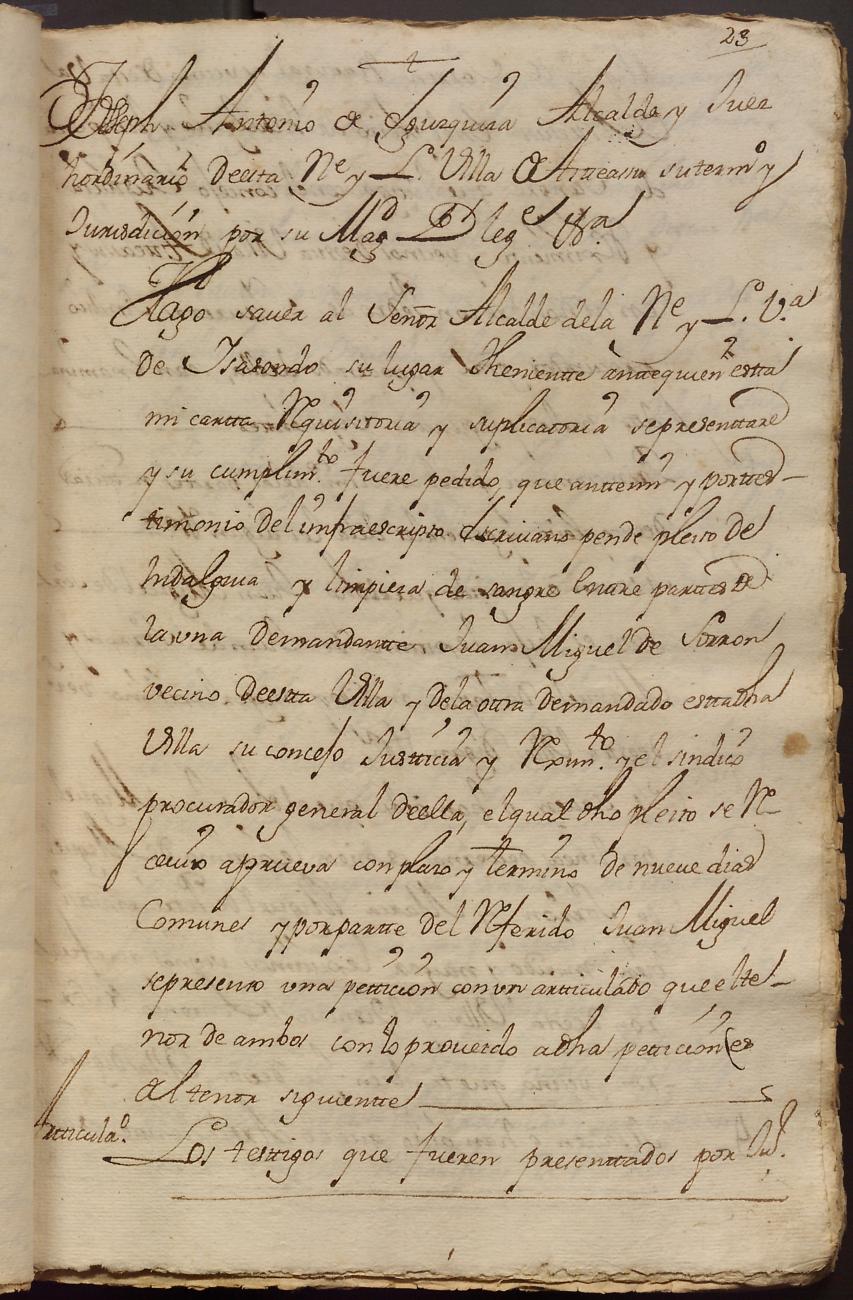 23
Joseph Antonio de Ygurquiza Alcalde y Juez
hordinario deesta Ne. y L. Villa de Atteaun su termo y
Jurisdicion por su Magd
Hago saver al Señor Alcalde dela Ne y L. V.a
de Isasondo su lugar theniente antte quien estta
mi cartta Requisitoria y suplicatoria se presenttare
y su cumplimto. fuere pedido, que antte mi y porttes-
timonio del infraescripto Escrivano pende pleito de
hidalguia y limpieza de sangre Entre parttes de
la una demandantte Juan Miguel de Sorron
vecino deestta Villa y dela otra demandado estta dha
Villa su concejo Justticia y Reximto. y el sindico
procurador general deella, el qual dho pleito se Re-
ceuio aprueva con plazo y termino de nueve dias
Comunes y por partte del Referido Juan Miguel
se presento una petticion con un artticulado que el te-
nor de ambos con lo proueido a dha petticion es
al tenor siguientte
Artticulado.
Los testtigos que fueren presenttados por Jun.